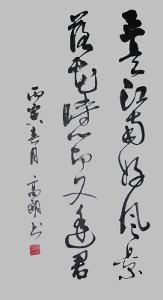 正是江南好风景
落花時节又逢君
丙寅春月 高 书